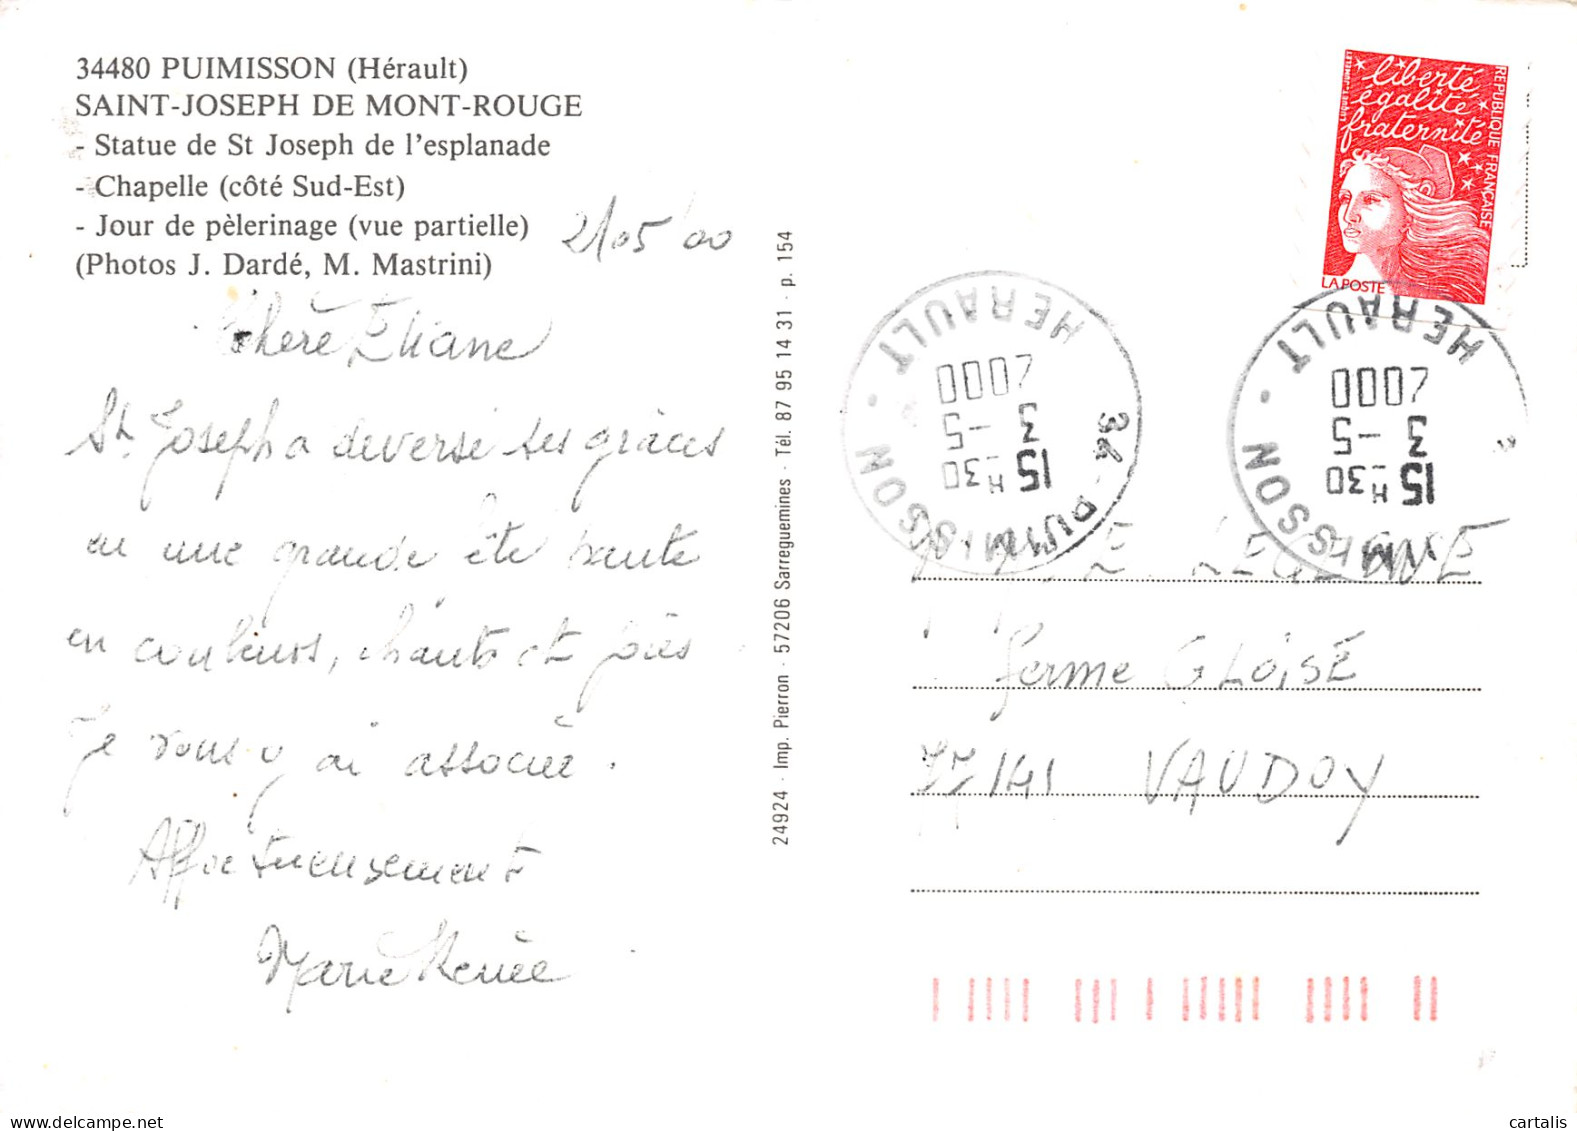 34480 PUIMISSON (Hérault)
SAINT-JOSEPH DE MONT-ROUGE
- Statue de St Joseph de l'esplanade
- Chapelle (côté Sud-Est)
- Jour de pèlerinage (vue partielle)
(Photos J. Dardé, M. Mastrini)
2/05 00
Chère Eliane
St Joseph a déversé ses grâces
en une grande fête haute
en couleurs, chants et joies
Je vous y ai associée.
Affectueusement
Marie Renée
24924 - Imp. Pierron - 57206 Sarreguemines - Tél. 87 95 14 31 - p. 154
liberté
égalité
fraternité
RÉPUBLIQUE FRANÇAISE
LA POSTE
34 - PUIMISSON - HERAULT
15 H 30
3 - 5
2000
PUIMISSON - HERAULT
15 H 30
3 - 5
2000
ferme GLOISE
77141 VAUDOY
cartalis